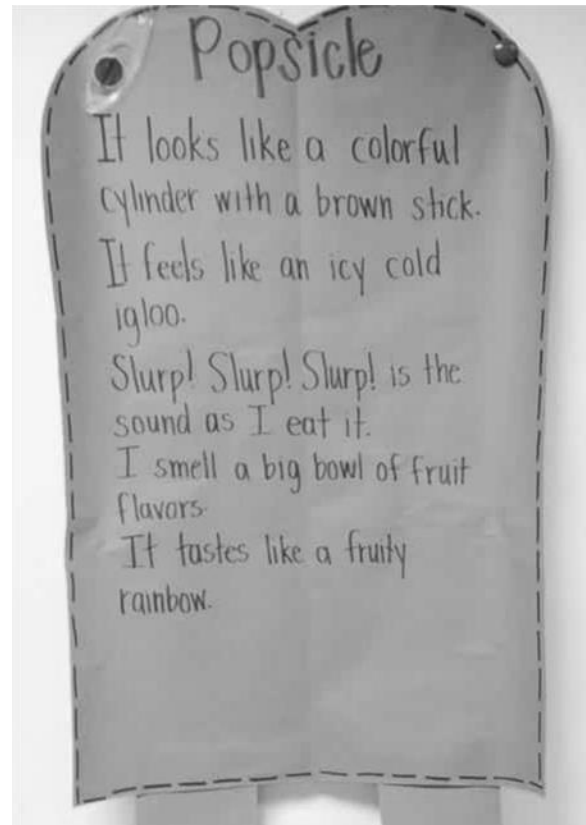 Popsicle
It looks like a colorful
cylinder with a brown stick.
It feels like an icy cold
igloo.
Slurp! Slurp! Slurp! is the
sound as I eat it.
I smell a big bowl of fruit
flavors.
It tastes like a fruity
rainbow.